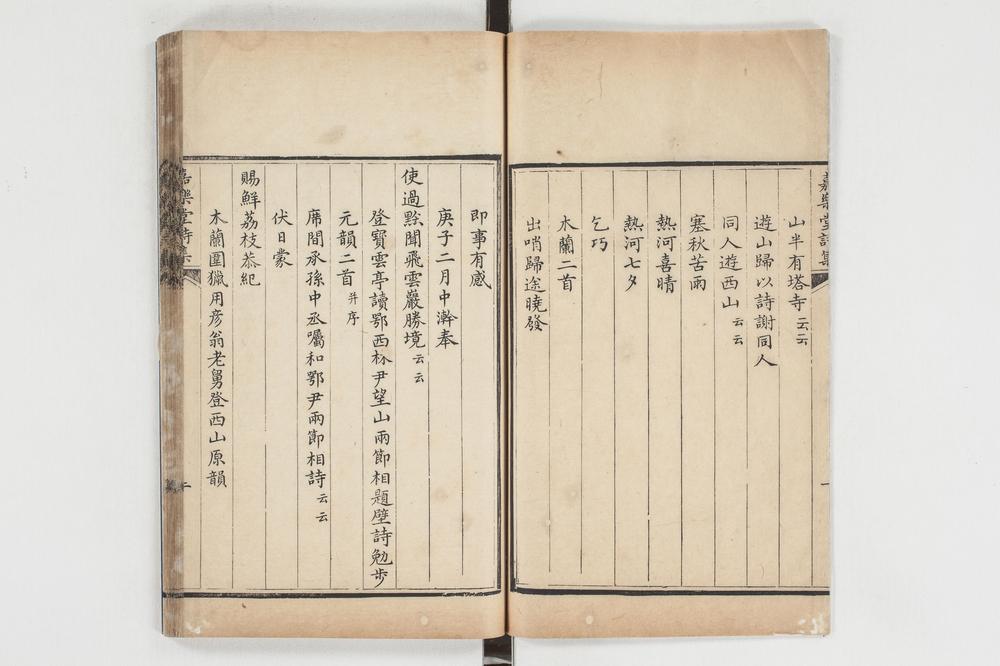 嘉樂堂詩集
山半有塔寺云云
遊山歸以詩謝同人
同人遊西山云云
塞秋苦雨
熱河喜晴
熱河七夕
乞巧
木蘭二首
出哨歸途曉發
即事有感
庚子二月中澣奉
使過黙聞飛雲巖勝境云云
登寶雲亭讀鄂西林尹望山兩節相題壁詩勉步
元韻二首并序
席間承孫中丞囑和鄂尹兩節相詩云云
伏日蒙
賜鮮荔枝恭紀
木蘭圍獵用彥翁老舅登西山原韻
嘉樂堂詩集